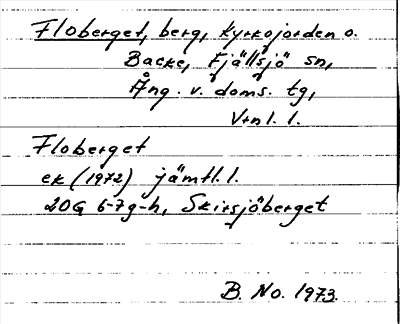 Floberget, berg, Kyrkojorden o.
Backe, Fjällsjö sn,
Ång. v. doms. tg,
Vrnl. l.
Floberget
ek (1972) jämtl. l.
20G 6-7g-h, Skirsjöberget
B. No. 1973.